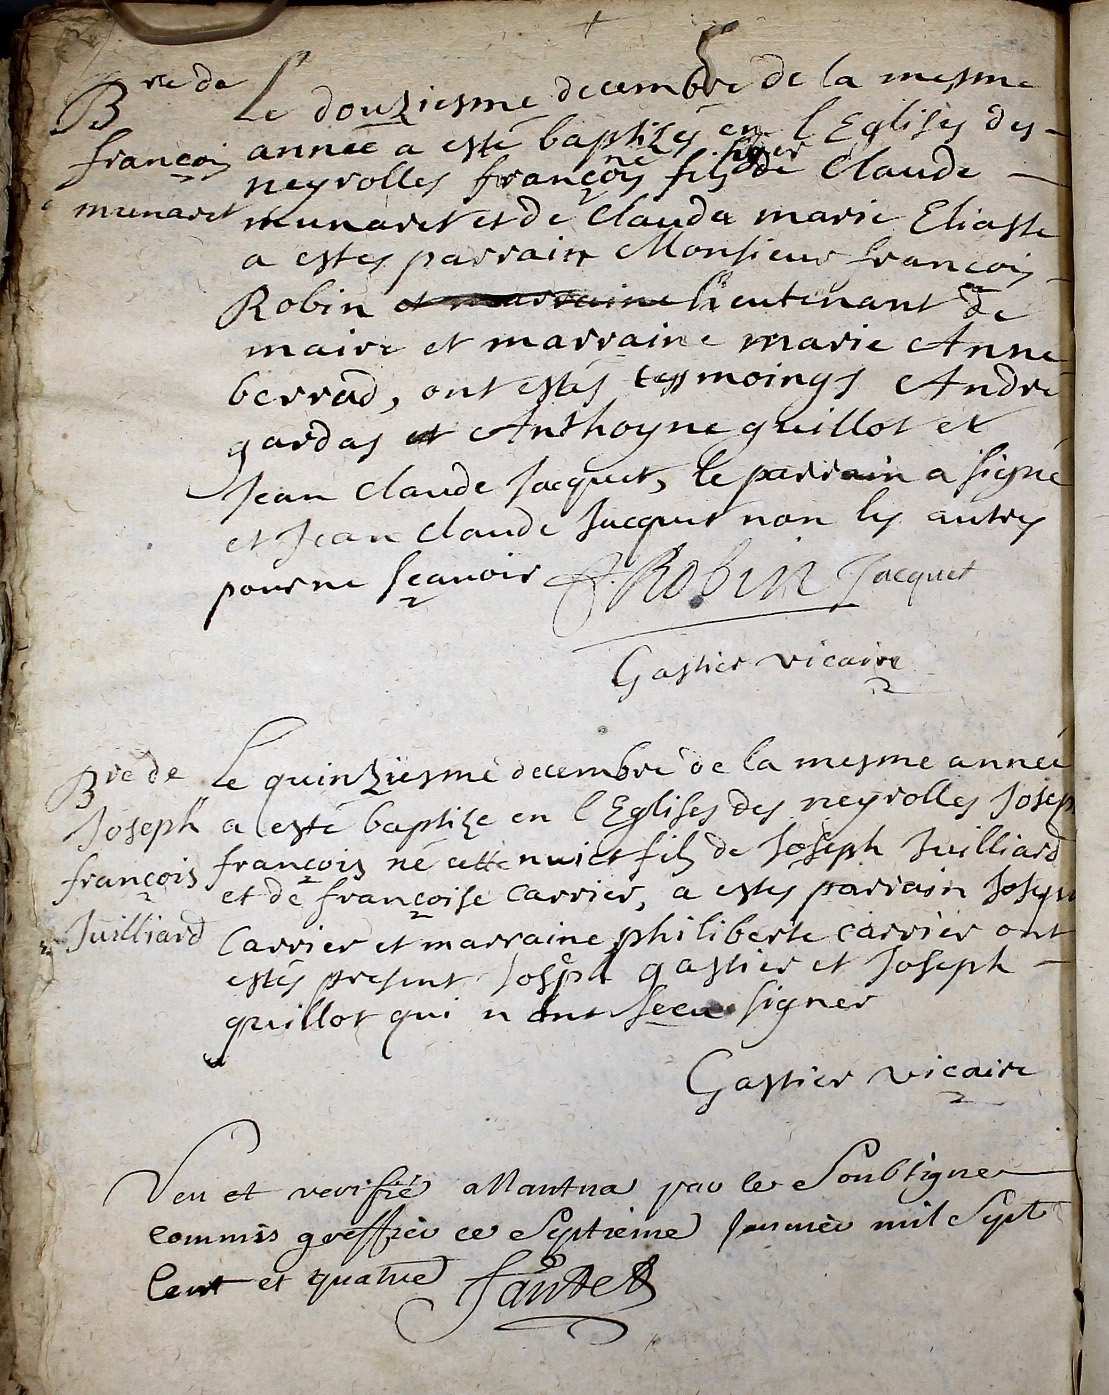 Bre de
françois
munaret
Le douziesme decembre de la mesme
année a esté baptisés en l Eglises des
neyrolles françois né hyer fils de Claude
munaret et de Clauda marie Eliaste
a estes parrain Monsieur françois
Robin et marraine lieutenant de
maire et marraine marie Anne
berrod, ont estés tesmoings André
gardas et Anthoyne guillot et
Jean Claude Jacquet, le parrain a signé
et Jean Claude Jacquet non les autres
pour ne sçavoir F. Robin Jacquet
Gastier vicaire
Bre de
Joseph
françois
Juilliard
Le quinziesme decembre de la mesme année
a esté baptize en l Eglises des neyrolles Joseph
françois né cette nuict fils de Joseph Juilliard
et de françoise Carrier, a estes parrain Joseph
Carrier et marraine philiberte carrier ont
estés present Joseph gastier et Joseph
guillot qui n ont sceu signer
Gastier vicaire
Veu et verifié a Nantua par le Soubsigne
commis greffier ce Septieme Janvier mil Sept
Cent et quatre